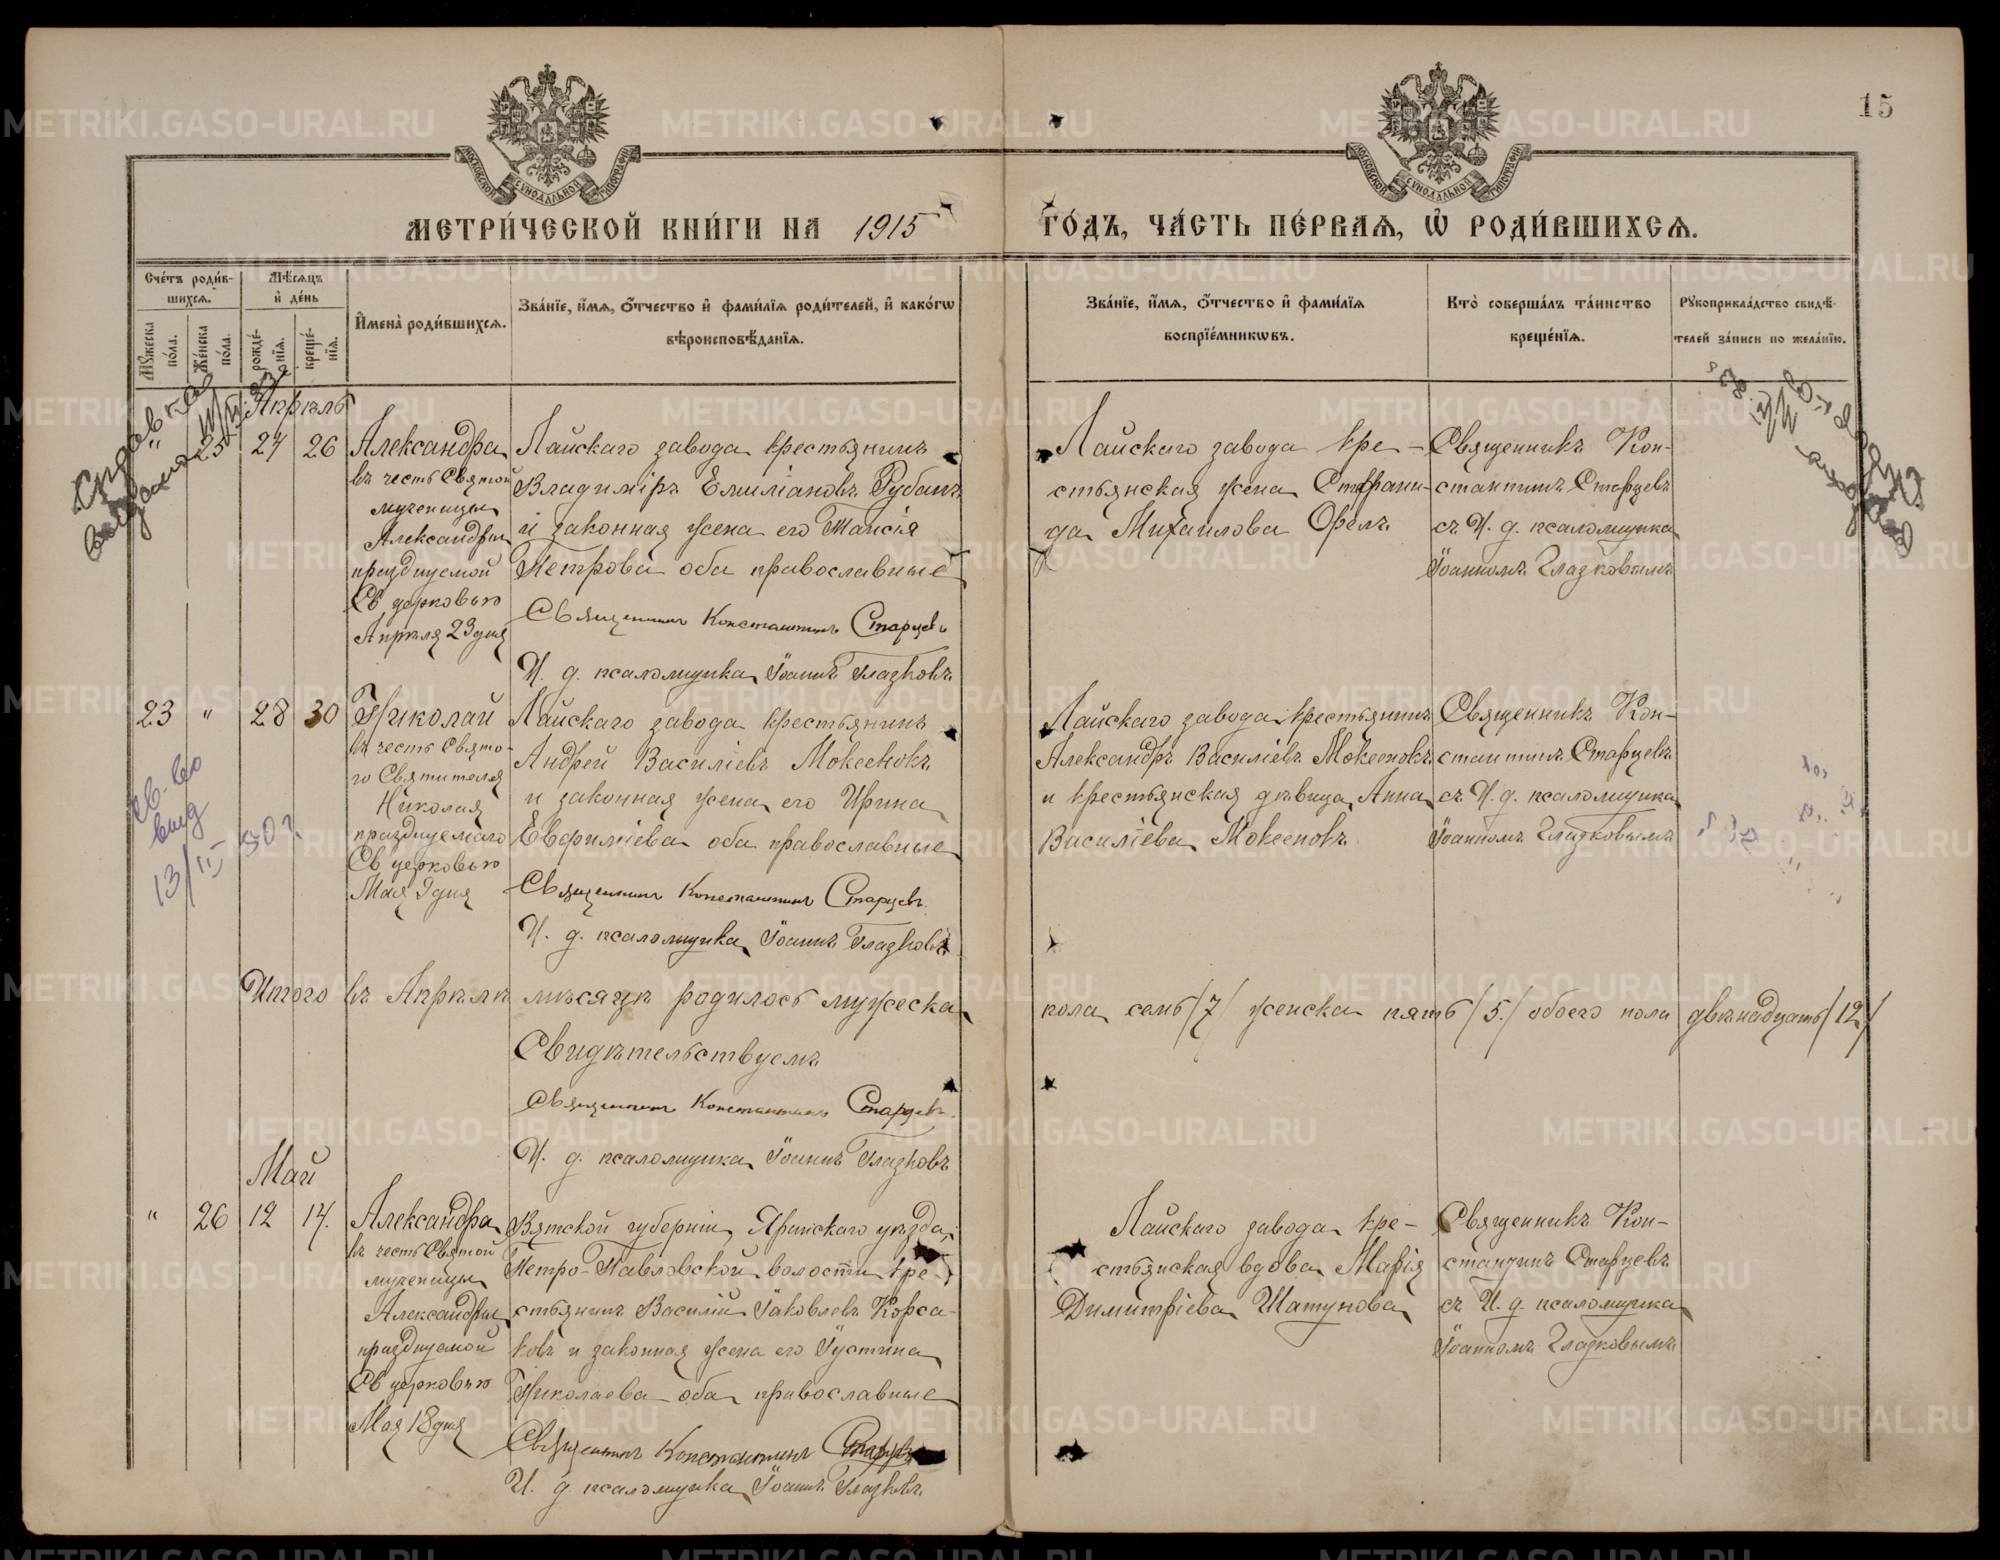 15
МЕТРИ́ЧЕСКОЙ КНИ́ГИ НА 1915 ГО́ДЪ, ЧА́СТЬ ПЕ́РВАЯ, Ѡ҆ РОДИ́ВШИХСЯ.
Сче́тъ роди́в-
шихся.
Мѣ́сяцъ
и҆ де́нь
Мꙋ́жеска
по́ла.
Же́нска
по́ла.
рожде́-
нїя.
креще́-
нїя.
И҆мена̀ роди́вшихся.
Зва́нїе, и҆́мя, ѻ҆́тчество и҆ фами́лїя роди́телей, и҆ како́гѡ
вѣроисповѣ́данїя.
Зва́нїе, и҆́мя, ѻ҆́тчество и҆ фами́лїя
воспрїе́мникѡвъ.
Кто̀ соверша́лъ та́инство
креще́нїя.
Рꙋкоприкла́дство свидѣ́-
телей за́писи по жела́нїю.
Справка
выдана
Апрѣль
" 25 24 26
Александра
въ честь Святой
мученицы
Александры
празднуемой
Св церковью
Апрѣля 23 дня
Лайскаго завода крестьянинъ
Владиміръ Емиліановъ Рубанъ
и законная жена его Таисія
Петрова оба православные
Священникъ Константинъ Старцевъ
И. д. псаломщика Іоаннъ Глазковъ
Лайскаго завода кре-
стьянская жена Стефани-
да Михаилова Орелъ
Священникъ Кон-
стантинъ Старцевъ
съ И. д. псаломщика
Іоанномъ Глазковымъ
23 " 28 30
Николай
въ честь Свято-
го Святителя
Николая
празднуемаго
Св церковью
Мая 9 дня
Лайскаго завода крестьянинъ
Андрей Василіевъ Мокеенокъ
и законная жена его Ирина
Евфиміева оба православные
Священникъ Константинъ Старцевъ
И. д. псаломщика Іоаннъ Глазковъ
Лайскаго завода крестьянинъ
Александръ Василіевъ Мокеенокъ
и крестьянская дѣвица Анна
Василіева Мокеенокъ
Священникъ Кон-
стантинъ Старцевъ
съ И. д. псаломщика
Іоанномъ Глазковымъ
св-во
выд
13/II 50 г.
Итого въ Апрѣлѣ мѣсяцѣ родилось мужеска пола семь /7/ женска пять /5./ обоего пола двѣнадцать /12/
Свидѣтельствуемъ
Священникъ Константинъ Старцевъ
И. д. псаломщика Іоаннъ Глазковъ
Май
" 26 12 14.
Александра
въ честь Святой
мученицы
Александры
празднуемой
Св церковью
Мая 18 дня
Вятской губерніи, Яранскаго уѣзда,
Петро-Павловской волости кре-
стьянинъ Василій Іаковлевъ Корса-
ковъ и законная жена его Іустина
Николаева оба православные
Священникъ Константинъ Старцевъ
И. д. псаломщика Іоаннъ Глазковъ
Лайскаго завода кре-
стьянская вдова Марія
Димитріева Шатунова
Священникъ Кон-
стандинъ Старцевъ
съ И. д. псаломщика
Іоанномъ Глазковымъ
METRIKI.GASO-URAL.RU